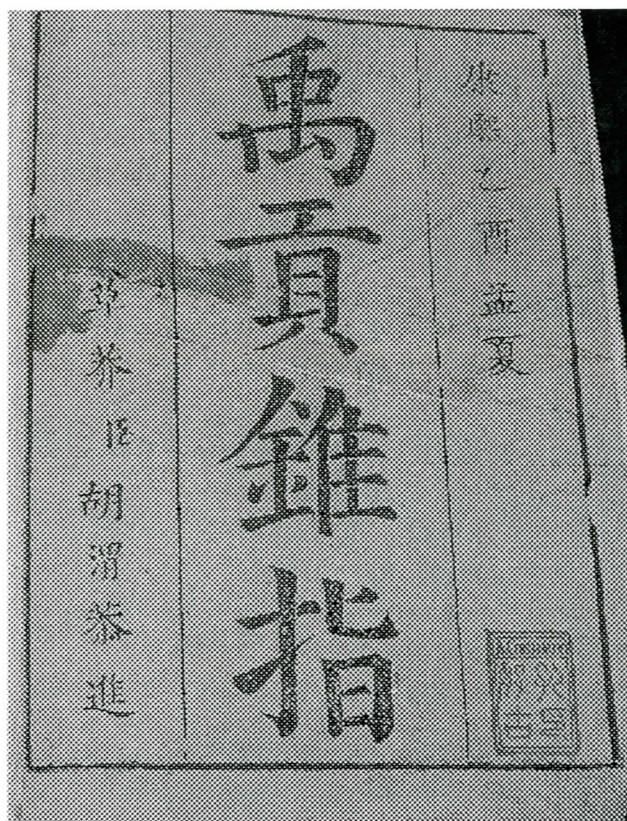 康熙乙酉孟夏
禹貢錐指
草莽臣胡渭恭進